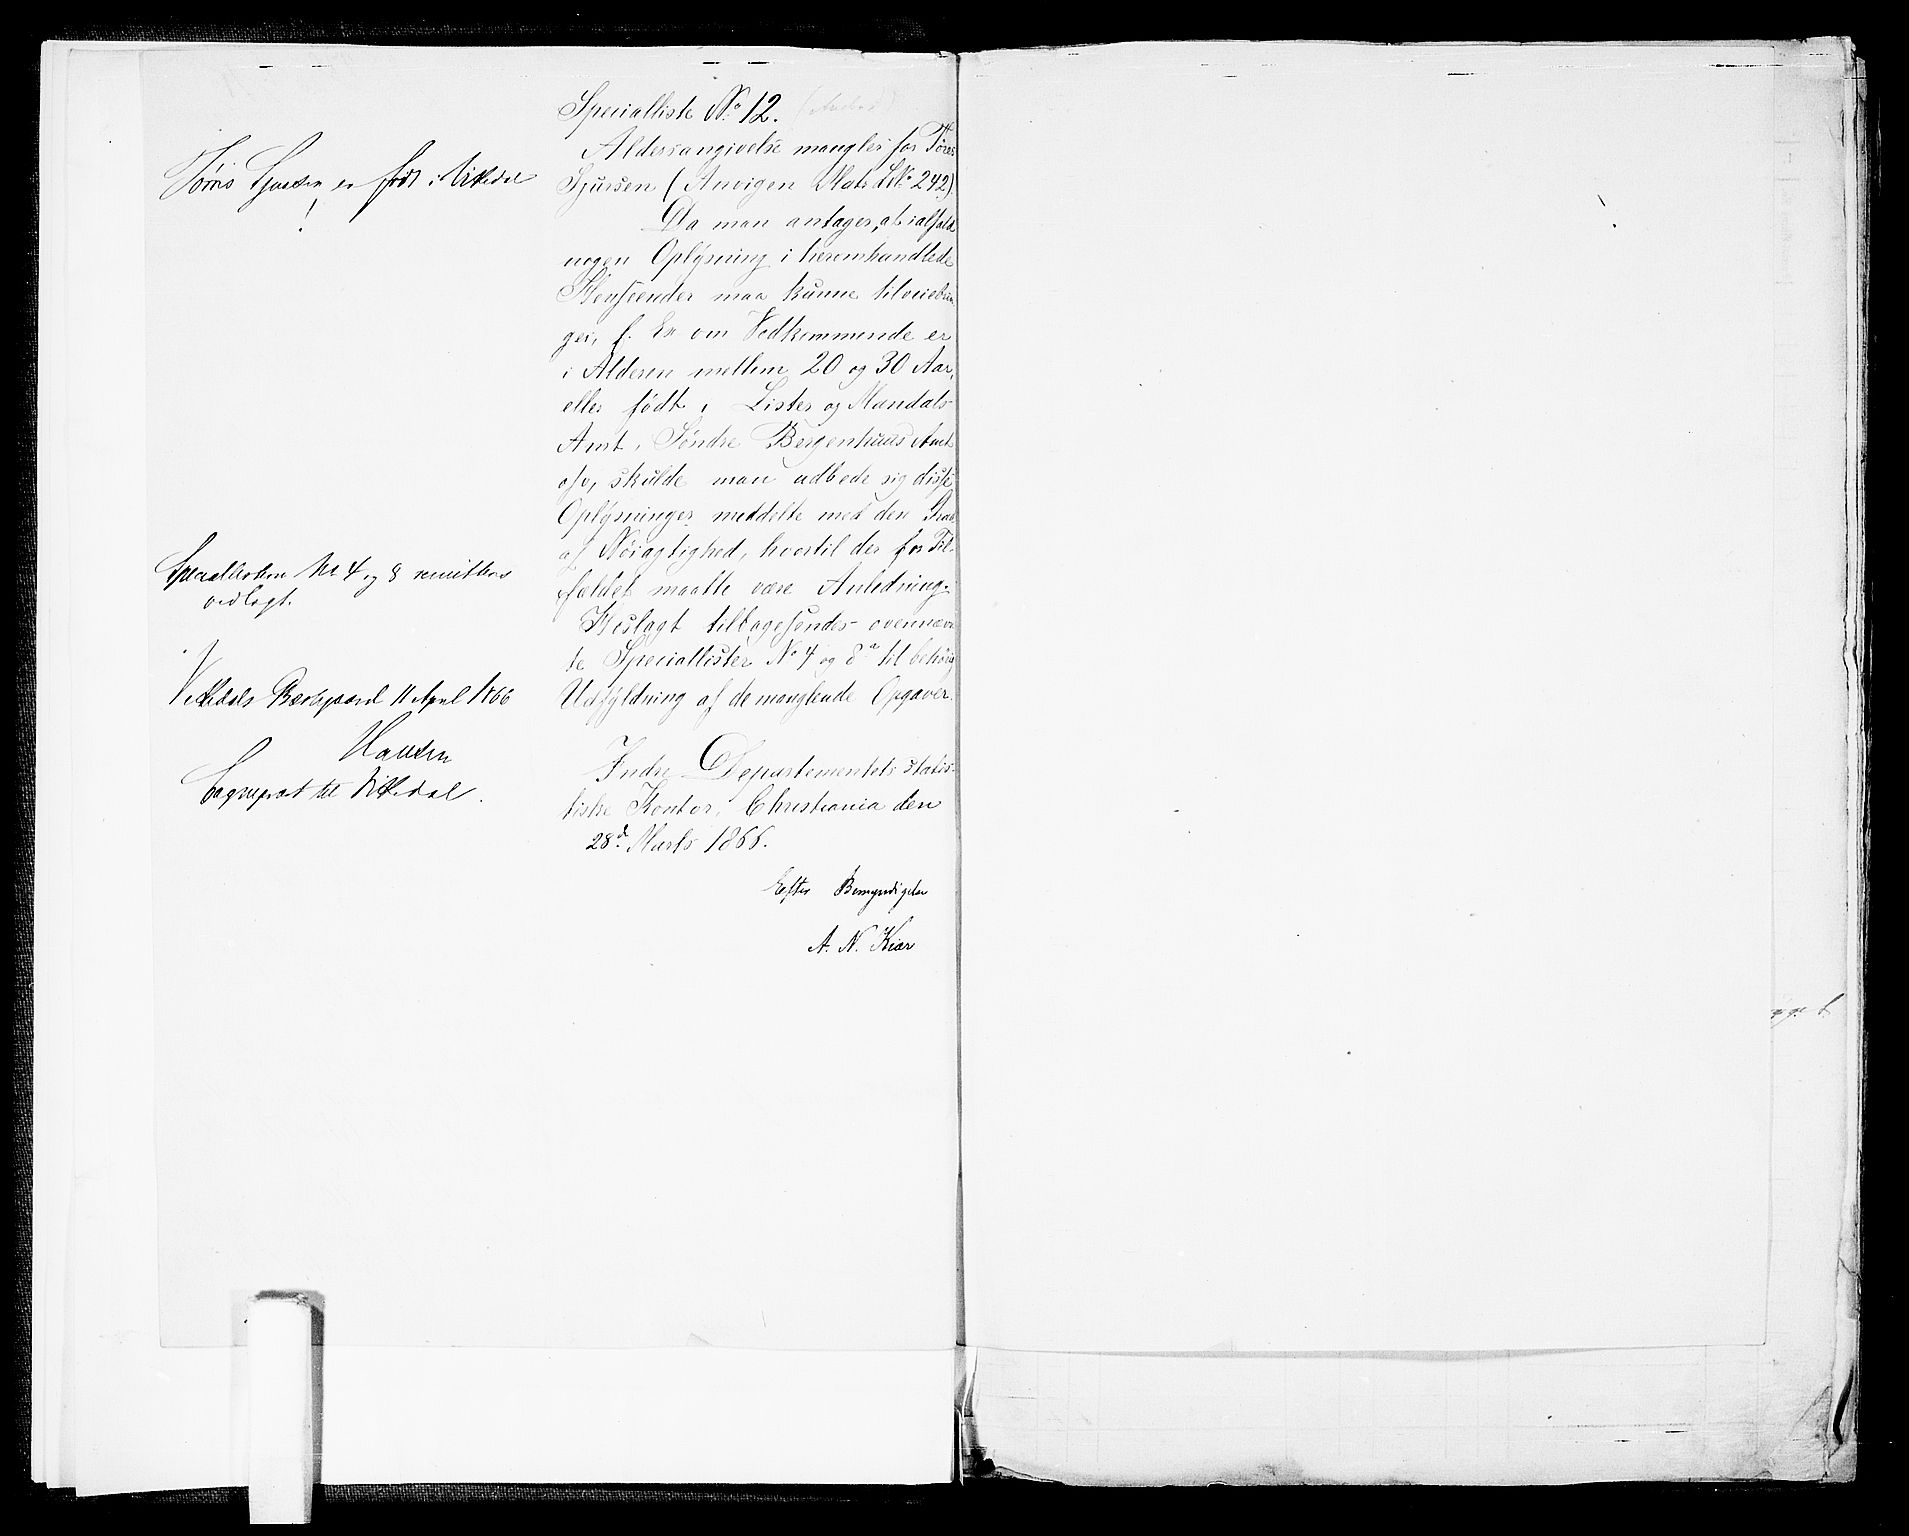 Specialliste No 12.
Aldersangivelse mangler for Tøres
Sjursen (Anvigen Matr. L. No 242).
Da man antager, at ialfald
nogen Oplysning i heromhandlede
Henseender maa kunne tilveiebrin-
ges, f. Ex om Vedkommende er
i Alderen mellem 20 og 30 Aar,
eller født i Lister og Mandals
Amt, Søndre Bergenhuus Amt
osv, skulde man udbede sig disse
Oplysninger meddelte med den Grad
af Nøiagtighed, hvortil der for Til-
fældet maatte være Anledning.
Hoslagt tilbagesendes ovennævn-
te Speciallister No 4 og 8 a til behørig
Udfyldning af de manglende Opgaver.
Indre Departementets statis-
tiske Kontor, Christiania den
28d Marts 1866.
Efter Bemyndigelse
A. N. Kiær
Tørris Sjursen er født i Vikedal
!
Speciallisterne No 4 og 8 remitteres
vedlagt.
Vikedals Præstegaard 11 April 1866
Hansen
Sognepræst til Vikedal.